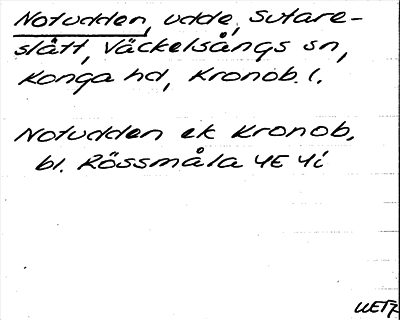 Notudden, udde, Sutare-
slätt, Väckelsångs sn,
Konga hd, Kronob. l.
Notudden ek Kronob,
bl. Rössmåla 4E 4i